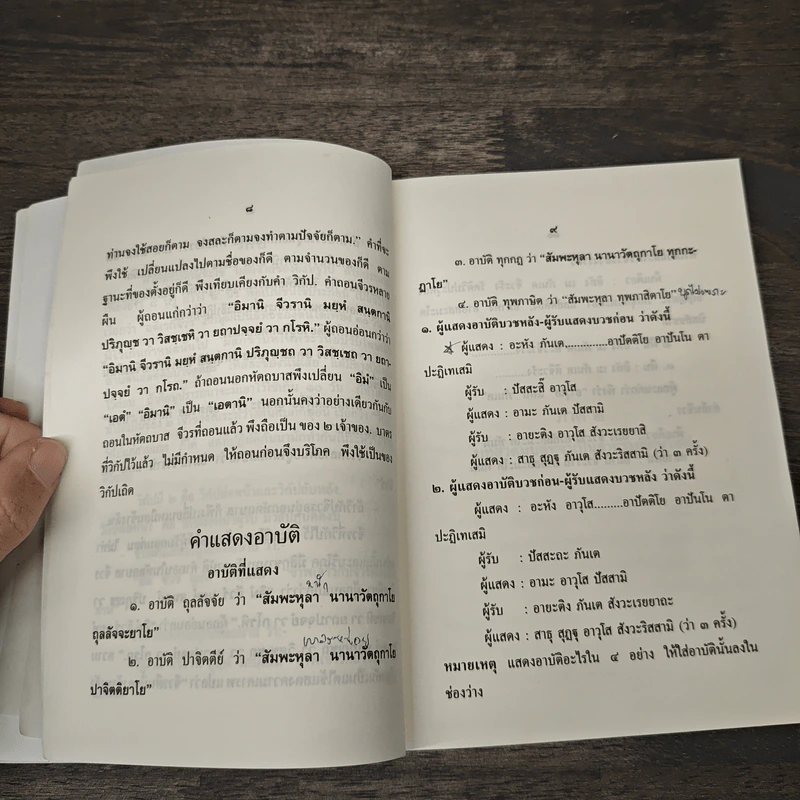 ๘
ท่านจงใช้สอยก็ตาม จงสละก็ตามจงทำตามปัจจัยก็ตาม.” คำที่จะ
พึงใช้ เปลี่ยนแปลงไปตามชื่อของก็ดี ตามจำนวนของก็ดี ตาม
ฐานะที่ของตั้งอยู่ก็ดี พึงเทียบเคียงกับคำ วิกัป. คำถอนจีวรหลาย
ผืน ผู้แก่กว่าว่า “อิมานิ จีวรานิ มยฺหํ สนฺตกานิ
ปริภุญฺช วา วิสชฺเชหิ วา ยถาปจฺจยํ วา กโรหิ.” ผู้ถอนอ่อนกว่าว่า
“อิมานิ จีวรานิ มยฺหํ สนฺตกานิ ปริภุญฺชถ วา วิสชฺเชถ วา ยถา-
ปจฺจยํ วา กโรถ.” ถ้าถอนนอกหัตถบาสพึงเปลี่ยน “อิมํ” เป็น
“เอตํ” “อิมานิ” เป็น “เอตานิ” นอกนั้นคงว่าอย่างเดียวกันกับ
ถอนในหัตถบาส จีวรที่ถอนแล้ว พึงถือเป็น ของ ๒ เจ้าของ. บาตร
ที่วิกัปไว้แล้ว ไม่มีกำหนด ให้ถอนก่อนจึงบริโภค พึงใช้เป็นของ
วิกัปเถิด
คำแสดงอาบัติ
อาบัติที่แสดง
๑. อาบัติ ถุลลัจจัย ว่า “สัมพะหุลา นานาวัตถุกาโย
ถุลลัจจะยาโย”
๒. อาบัติ ปาจิตตีย์ ว่า “สัมพะหุลา นานาวัตถุกาโย
ปาจิตติยาโย”
๙
๓. อาบัติ ทุกกฏ ว่า “สัมพะหุลา นานาวัตถุกาโย ทุกกะ-
ฏาโย”
๔. อาบัติ ทุพภาษิต ว่า “สัมพะหุลา ทุพภาสิตาโย”
๑. ผู้แสดงอาบัติบวชหลัง-ผู้รับแสดงบวชก่อน ว่าดังนี้
ผู้แสดง : อะหัง ภันเต..............อาปัตติโย อาปันโน ตา
ปะฏิเทเสมิ
ผู้รับ : ปัสสะสิ๊ อาวุโส
ผู้แสดง : อามะ ภันเต ปัสสามิ
ผู้รับ : อายะติง อาวุโส สังวะเรยยาสิ
ผู้แสดง : สาธุ สุฏฐุ ภันเต สังวะริสสามิ (ว่า ๓ ครั้ง)
๒. ผู้แสดงอาบัติบวชก่อน-ผู้รับแสดงบวชหลัง ว่าดังนี้
ผู้แสดง : อะหัง อาวุโส.........อาปัตติโย อาปันโน ตา
ปะฏิเทเสมิ
ผู้รับ : ปัสสะถะ ภันเต
ผู้แสดง : อามะ อาวุโส ปัสสามิ
ผู้รับ : อายะติง ภันเต สังวะเรยยาถะ
ผู้แสดง : สาธุ สุฏฐุ อาวุโส สังวะริสสามิ (ว่า ๓ ครั้ง)
หมายเหตุ แสดงอาบัติอะไรใน ๔ อย่าง ให้ใส่อาบัตินั้นลงใน
ช่องว่าง